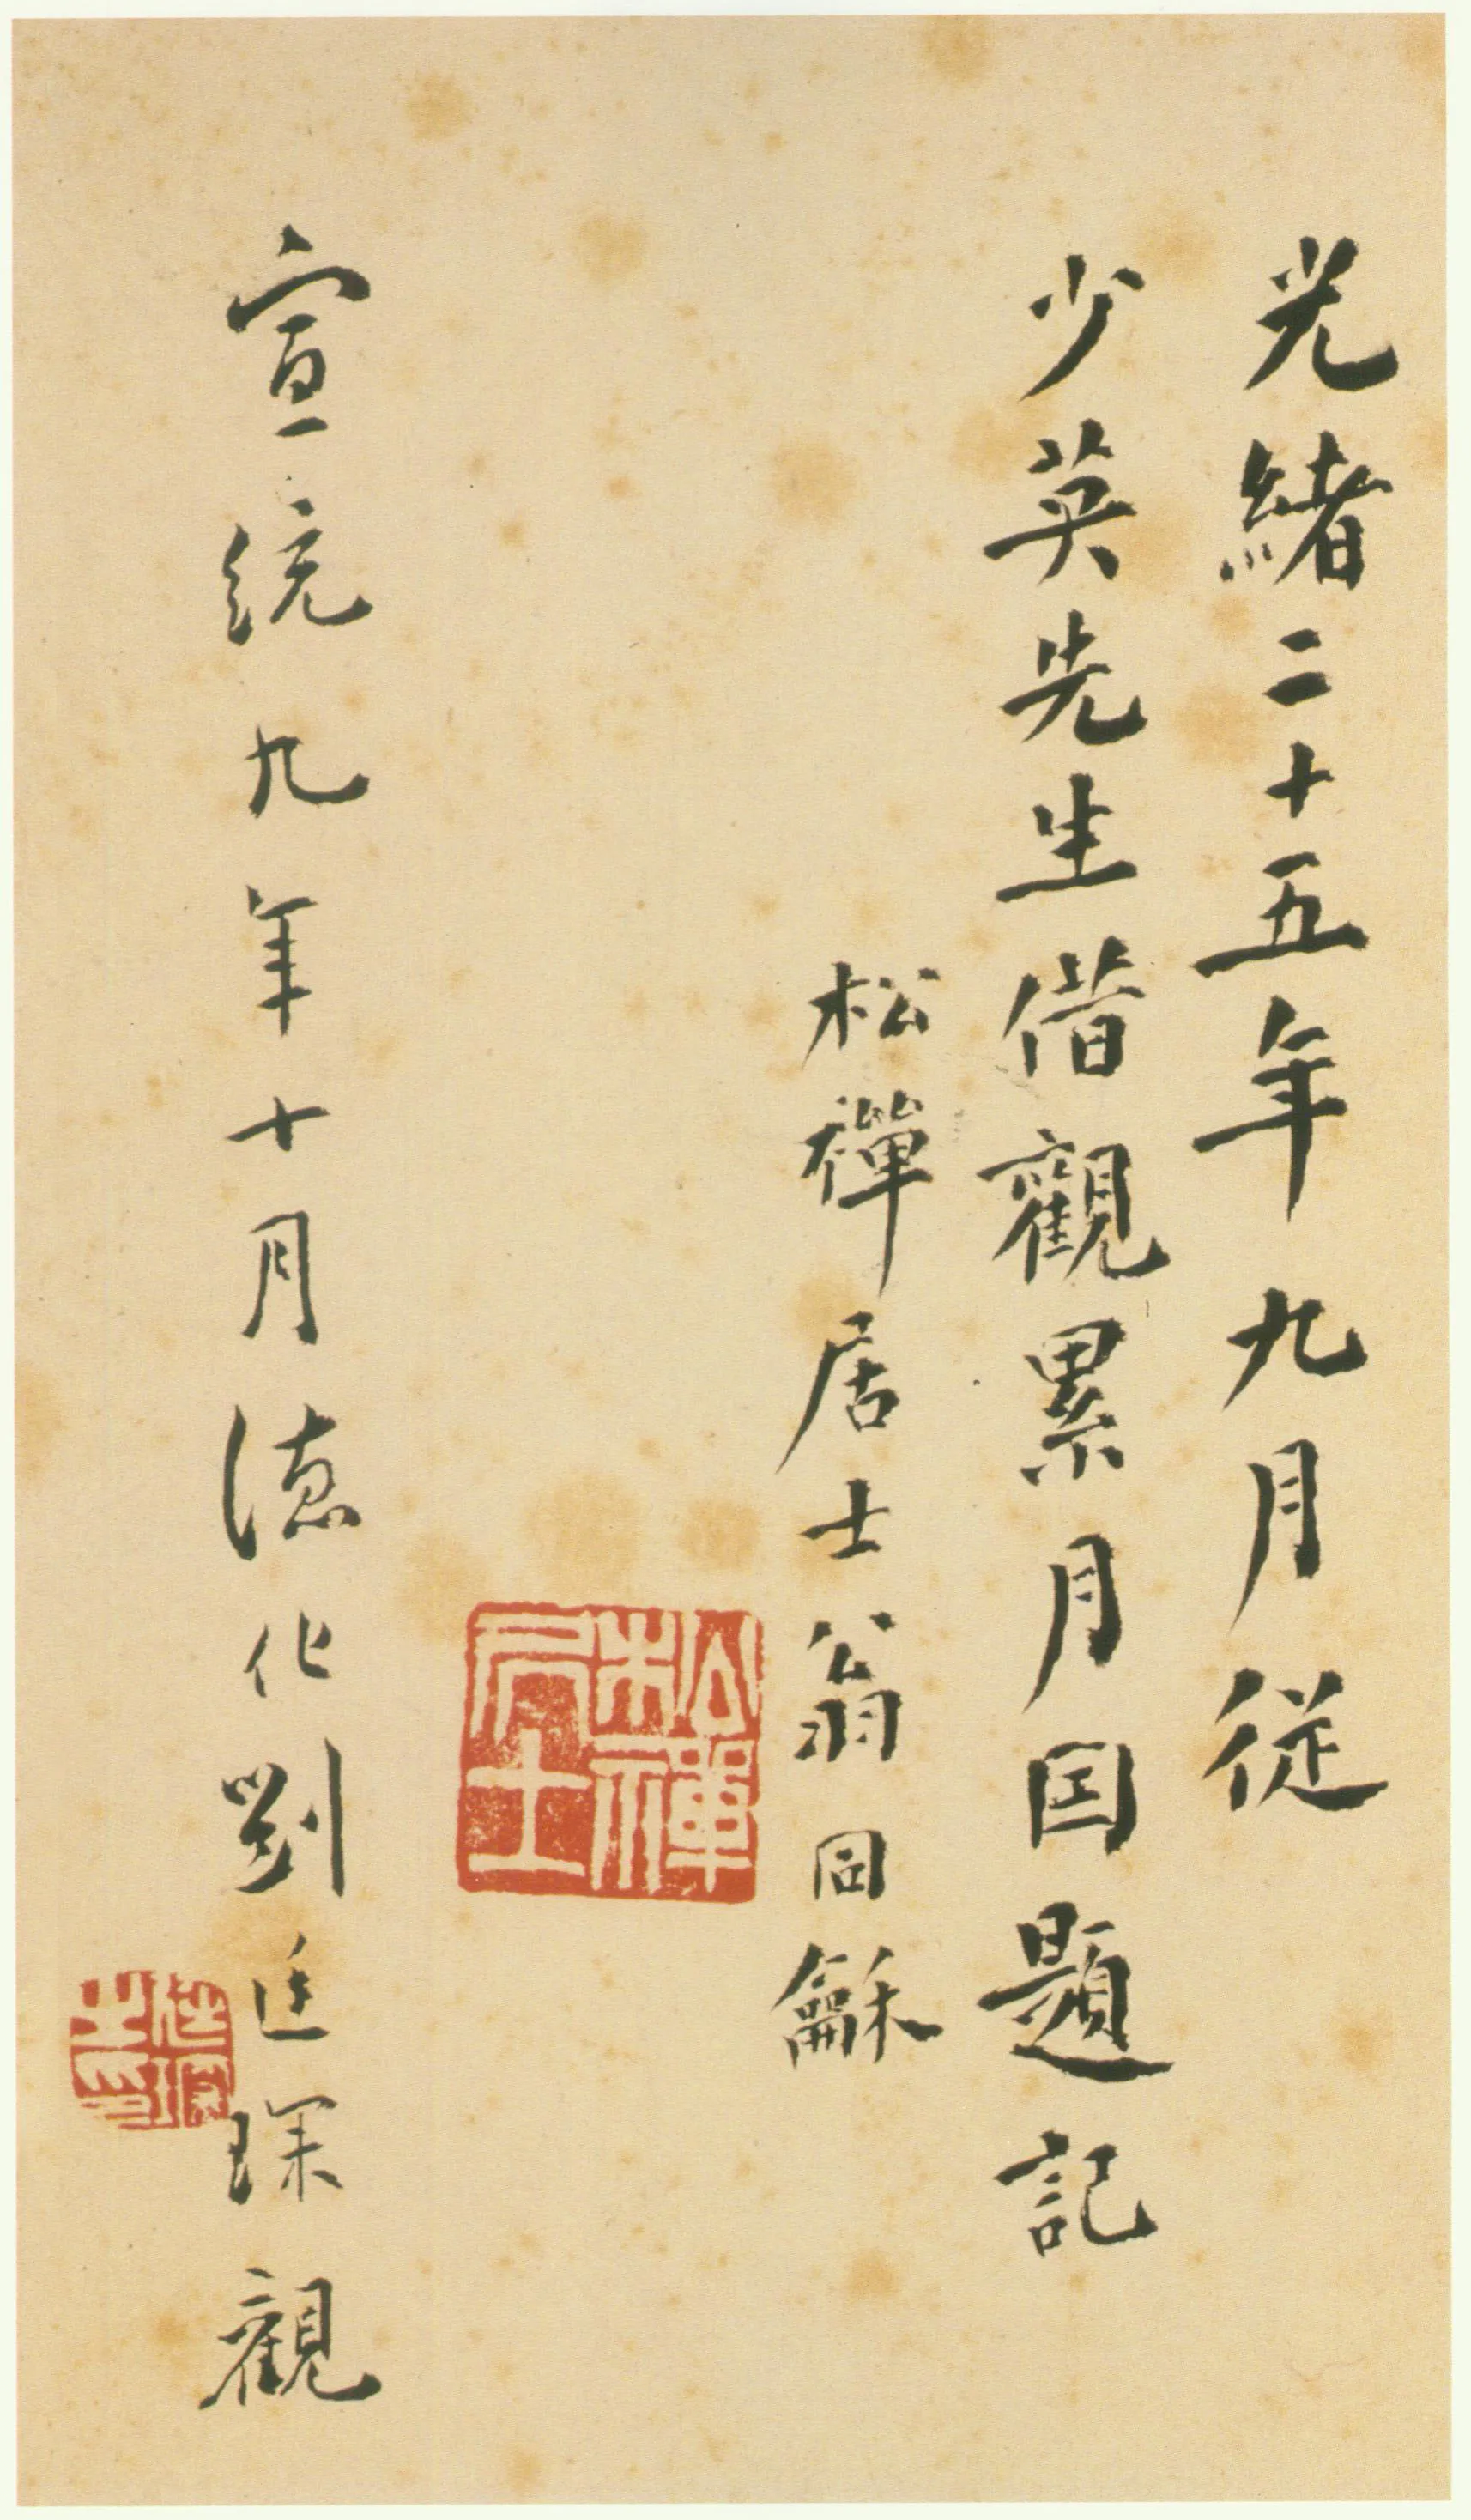 光緒二十五年九月従
少英先生借觀累月因題記
松禪居士翁同龢
松禪居士
宣統九年十月德化劉廷琛觀